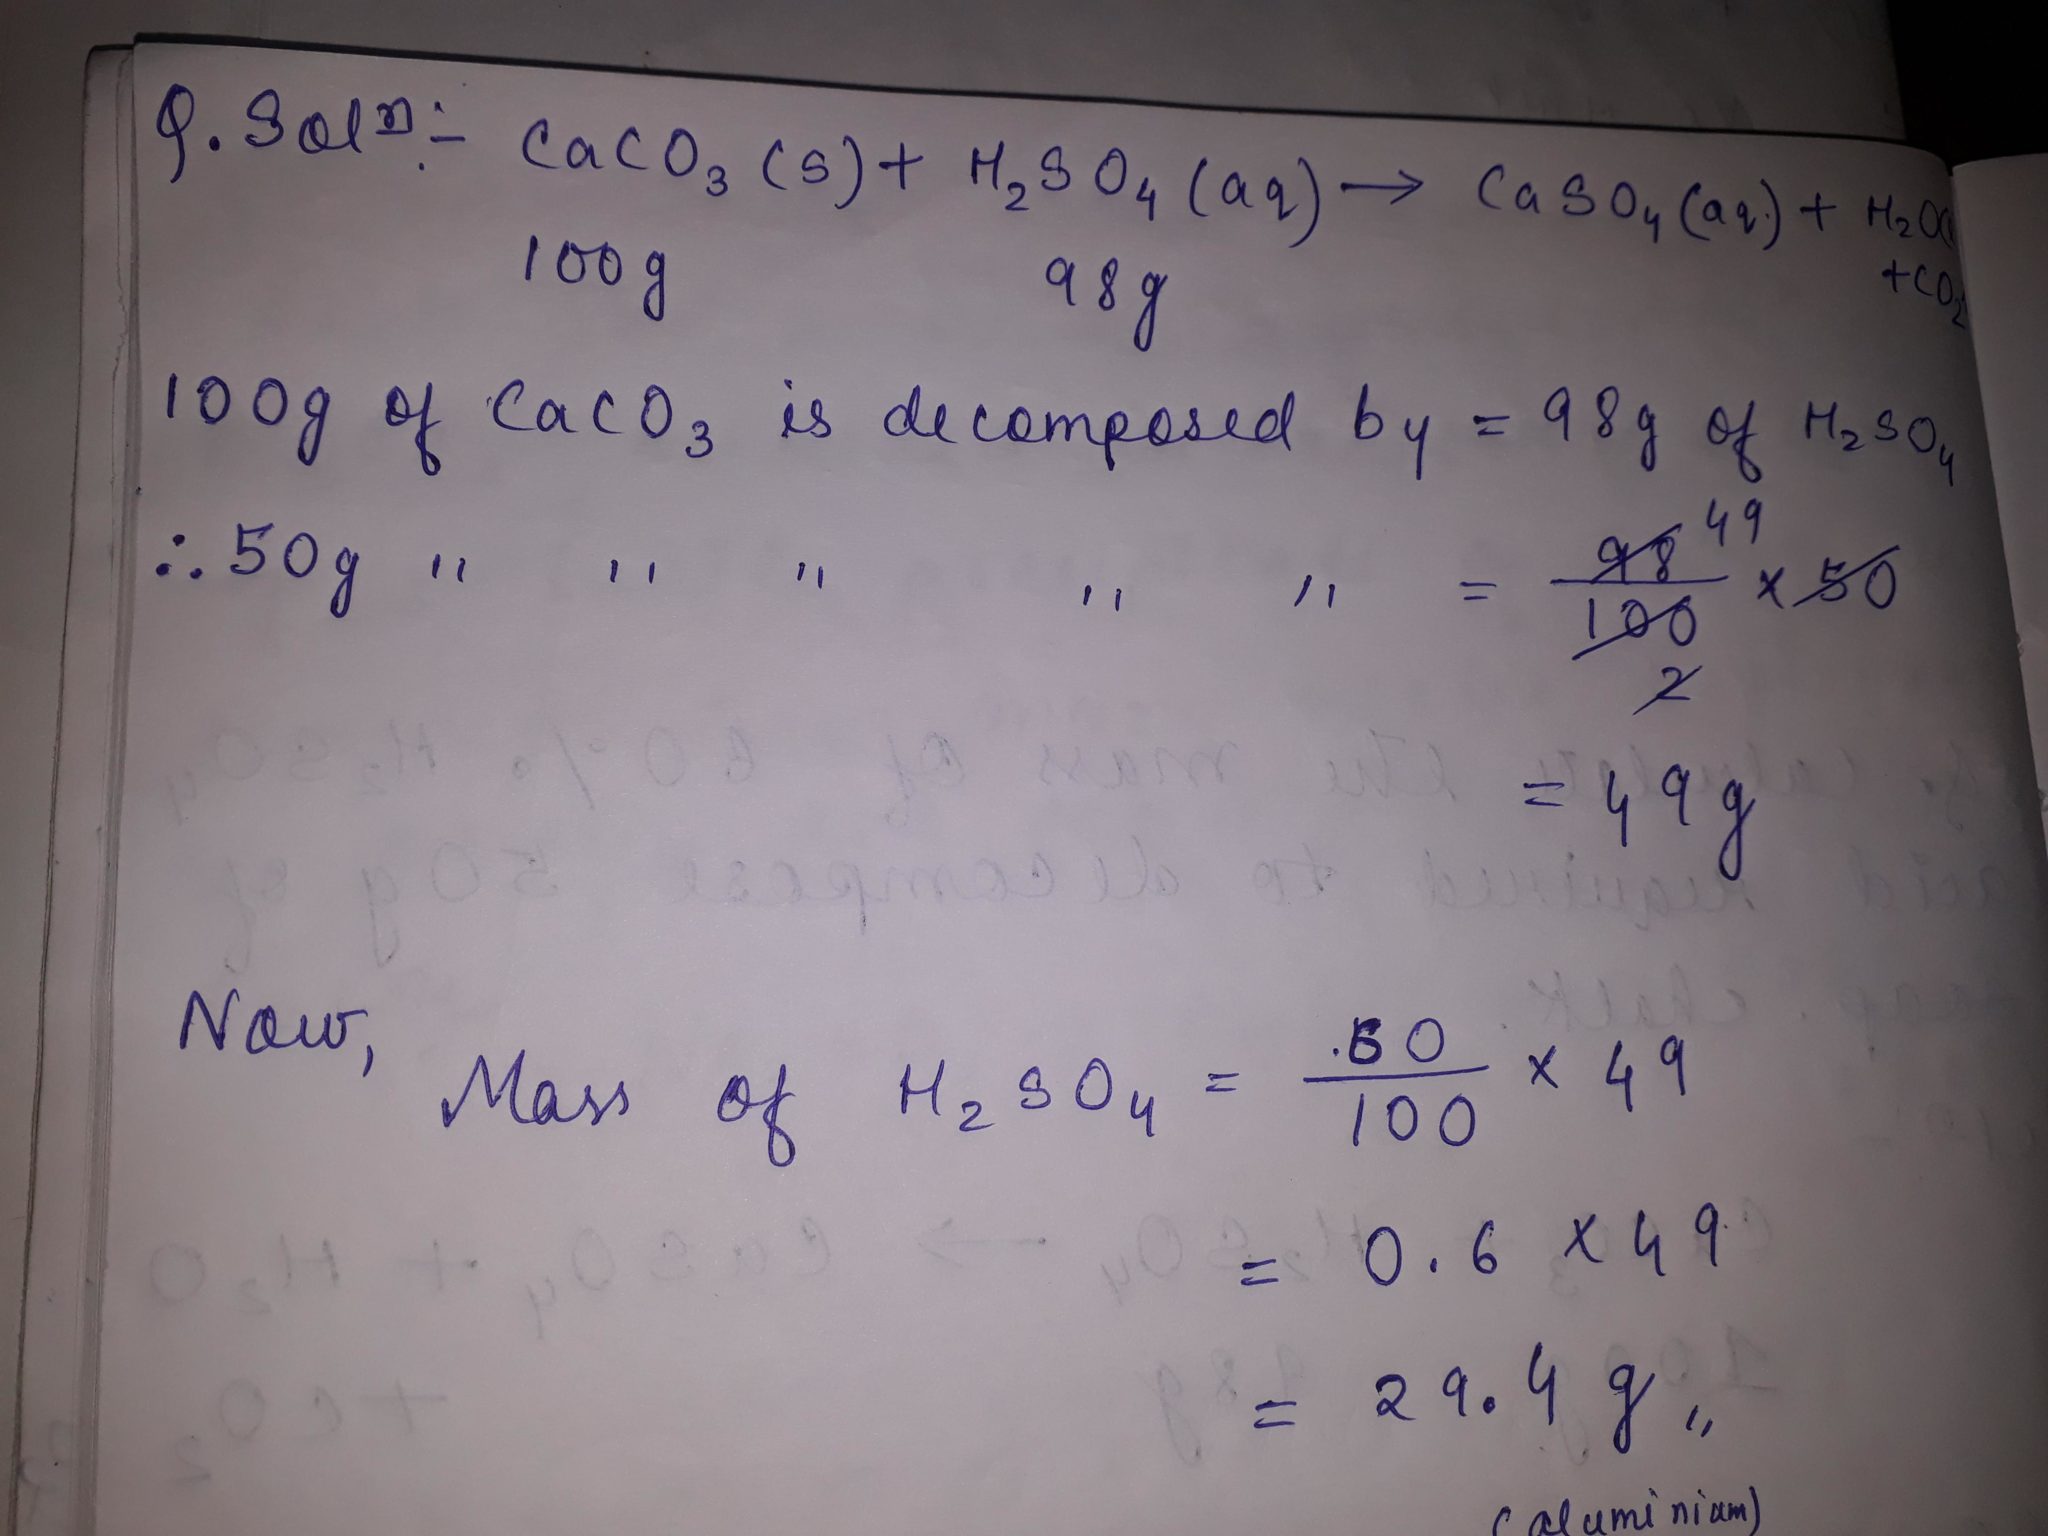 Q. Solⁿ:- CaCO₃ (s) + H₂SO₄ (aq) → CaSO₄ (aq.) + H₂O(
+CO₂
100g 98g
100g of CaCO₃ is decomposed by = 98g of H₂SO₄
∴ 50g " " " " " = 98/100 × 50
49
2
= 49g
Now,
Mass of H₂SO₄ = 60/100 × 49
= 0.6 × 49
= 29.4 g "
(aluminium)